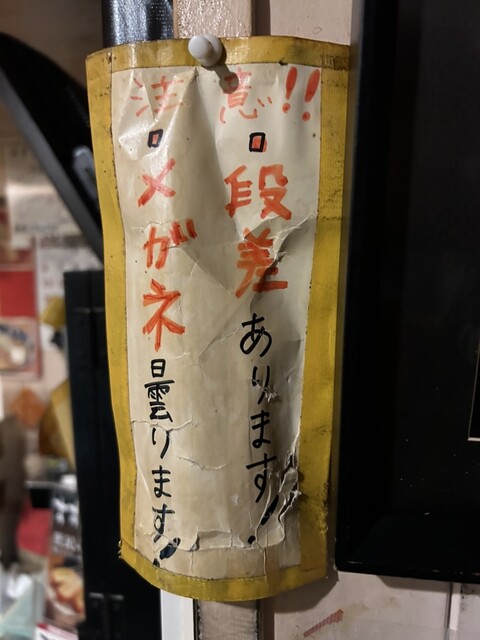 注意!!
□段差あります!!
□メガネ曇ります!!